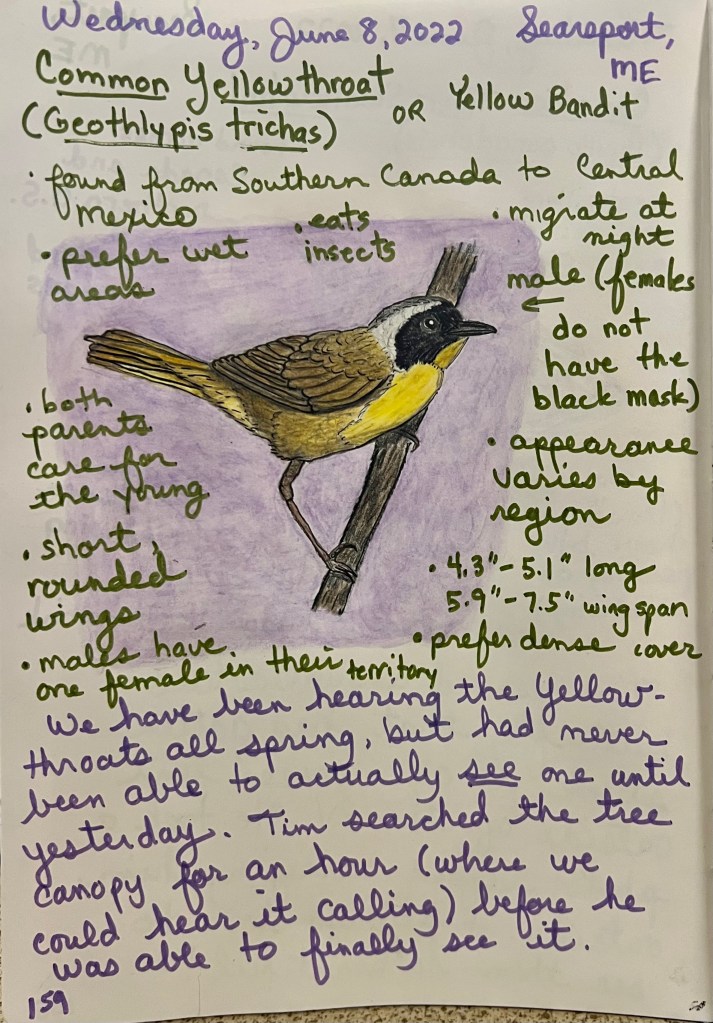 Wednesday, June 8, 2022 Searsport, ME
Common Yellowthroat
(Geothlypis trichas)
OR Yellow Bandit
• found from Southern Canada to Central Mexico
• eats
insects
• migrate at
night
• prefer wet
areas
male (females
←
do not
have the
black mask)
• both
parents
care for
the young
• appearance
varies by
region
• short,
rounded
wings
• 4.3"-5.1" long
5.9"-7.5" wing span
• prefer dense cover
• males have
one female in their territory
We have been hearing the Yellow-
throats all spring, but had never
been able to actually see one until
yesterday. Tim searched the tree
canopy for an hour (where we
could hear it calling) before he
was able to finally see it.
159